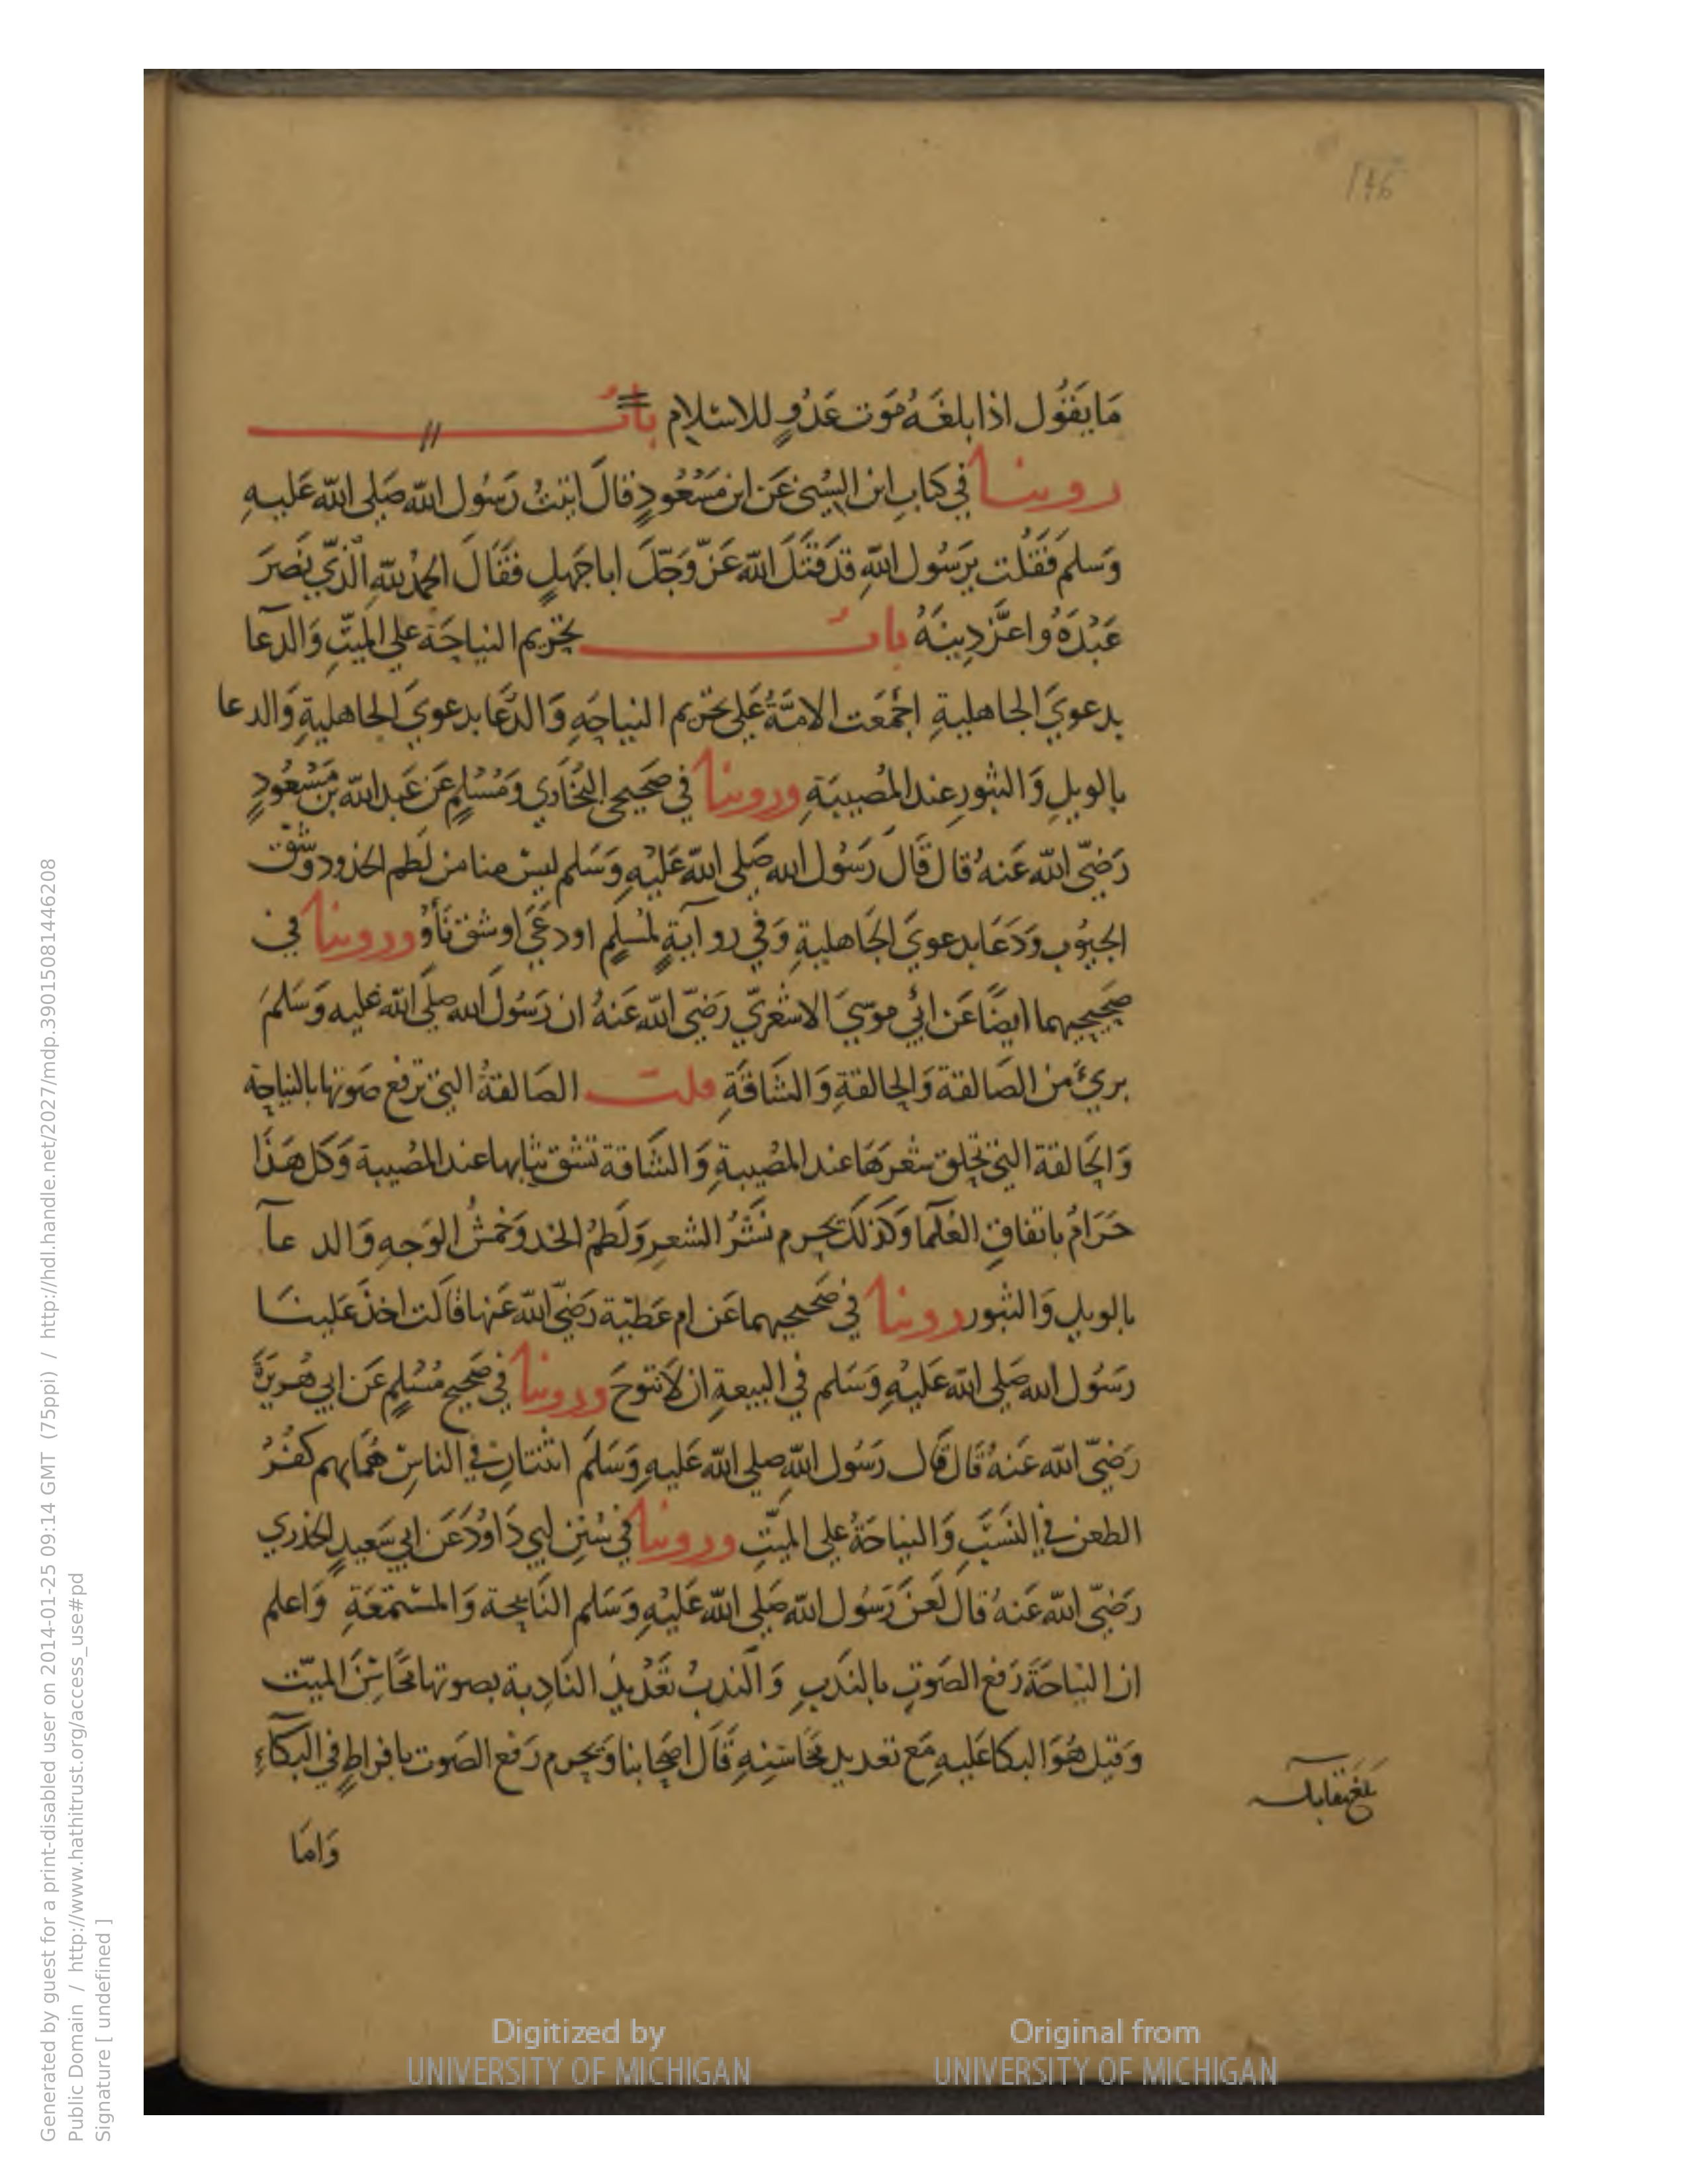 146
مَا يَقُول اذا بلغَهُ مَوت عَدُوٍ للاسْلامِ بابُ
روينا في كتابِ ابن السُنيّ عَن ابن مَسْعُودٍ قالَ اتيتُ رَسُول اللّه صَلى اللّه عَليهِ
وَسَلم فَقُلت يرَسُول اللّهِ قدقَتَلَ اللّه عَزّ وَجّلَ اباجَهلٍ فقَالَ الحمْدُ للّهِ الّذي نَصَرَ
عَبْدَهُ واعَّز دِينَهُ بابُ تحْرِيم النياحَة علي الميتِ وَالدعآ
بدعويَ الجاهليةِ اجْمَعَت الامَّةُ عَلي تحْرِيم النياحَهِ وَالدُّعَا بدعويَ الجاهليةِ وَالدعا
بالويلِ وَالثبُورِ عِند المُصِيبَةِ وروينا في صَحيحَي البُخَاري وَمُسْلِمٍ عَن عَبد اللّه بن مَسْعُودٍ
رَضِيّ اللّه عَنهُ قال قَالَ رَسُول الله صَلى اللّه عَليْهِ وَسَلم ليسَ منا من لَطم الخدود وَشقّ
الجيُوب وَدَعَا بدعويَ الجَاهليةِ وَفي روايَةٍ لمُسلِمٍ اودعَي اوشق بَأوْ وروينا في
صَحيحيهما ايضًا عَن ابي مُوسَيَ الاشعَريّ رَضِيّ اللّه عَنهُ ان رَسُولَ الله صلى اللّه عَليه وَسَلمَ
بريءَ من الصَالقة وَالحالقةِ وَالشَاقَةِ قلت الصَالقةُ التي ترفع صَوتها بالنياحَة
وَالحَالقة التي تحلق شعرَهَا عند المُصِيبةِ وَالشَاقة تشق ثيابها عند المُصيبة وَكل هَذَا
حَرَامُ باتفاقِ العُلمَا وَكذلكَ يحرم نَشْرُ الشعرِ وَلَطْمُ الخد وَخمْشُ الوَجهِ وَالدعآ
بالويل وَالثبور روينا في صَحيحيهما عَن ام عَطيّة رَضِيَ اللّه عَنها قالَت اخذَ عَلينَا
رَسُول الله صَلى اللّه عَليْهِ وَسَلم في البيعةِ ان لاَننوحَ وروينا في صَحيح مُسْلِمٍ عَن ابي هُريرَةَ
رَضِيّ اللّه عَنهُ قالَ قَال رَسُول اللّهِ صلى اللّه عَليهِ وَسَلمَ اثنَتان في الناسِ هُمَا بهم كفُرُ
الطعن في النسَبِ وَالنياحَةُ على الميّتِ وروينا في سُنَن ابي دَاوُدَ عَن ابي سَعيدٍ الخدري
رَضِيّ اللّه عَنهُ قال لَعَنَ رَسُول اللّه صَلى اللّه عَليْهِ وَسَلم النَائحة وَالمستمعَةِ وَاعلم
ان النياحَةَ رَفع الصَوتِ بالنَدبِ وَالندبُ تَعْديدُ النَادِبة بصوتها مَحَاسِنَ الميّت
وَقيل هُوَ البكا عَليهِ مَع تعديد مَحَاسِنِهِ قَالَ اصحَابنا وَيحرم رَفع الصَوت بافراطٍ في البكآءِ
وَامَا
بَلغ مقابله
Digitized by
UNIVERSITY OF MICHIGAN
Original from
UNIVERSITY OF MICHIGAN
Generated by guest for a print-disabled user on 2014-01-25 09:14 GMT (75ppi) / http://hdl.handle.net/2027/mdp.39015081446208
Public Domain / http://www.hathitrust.org/access_use#pd
Signature [ undefined ]